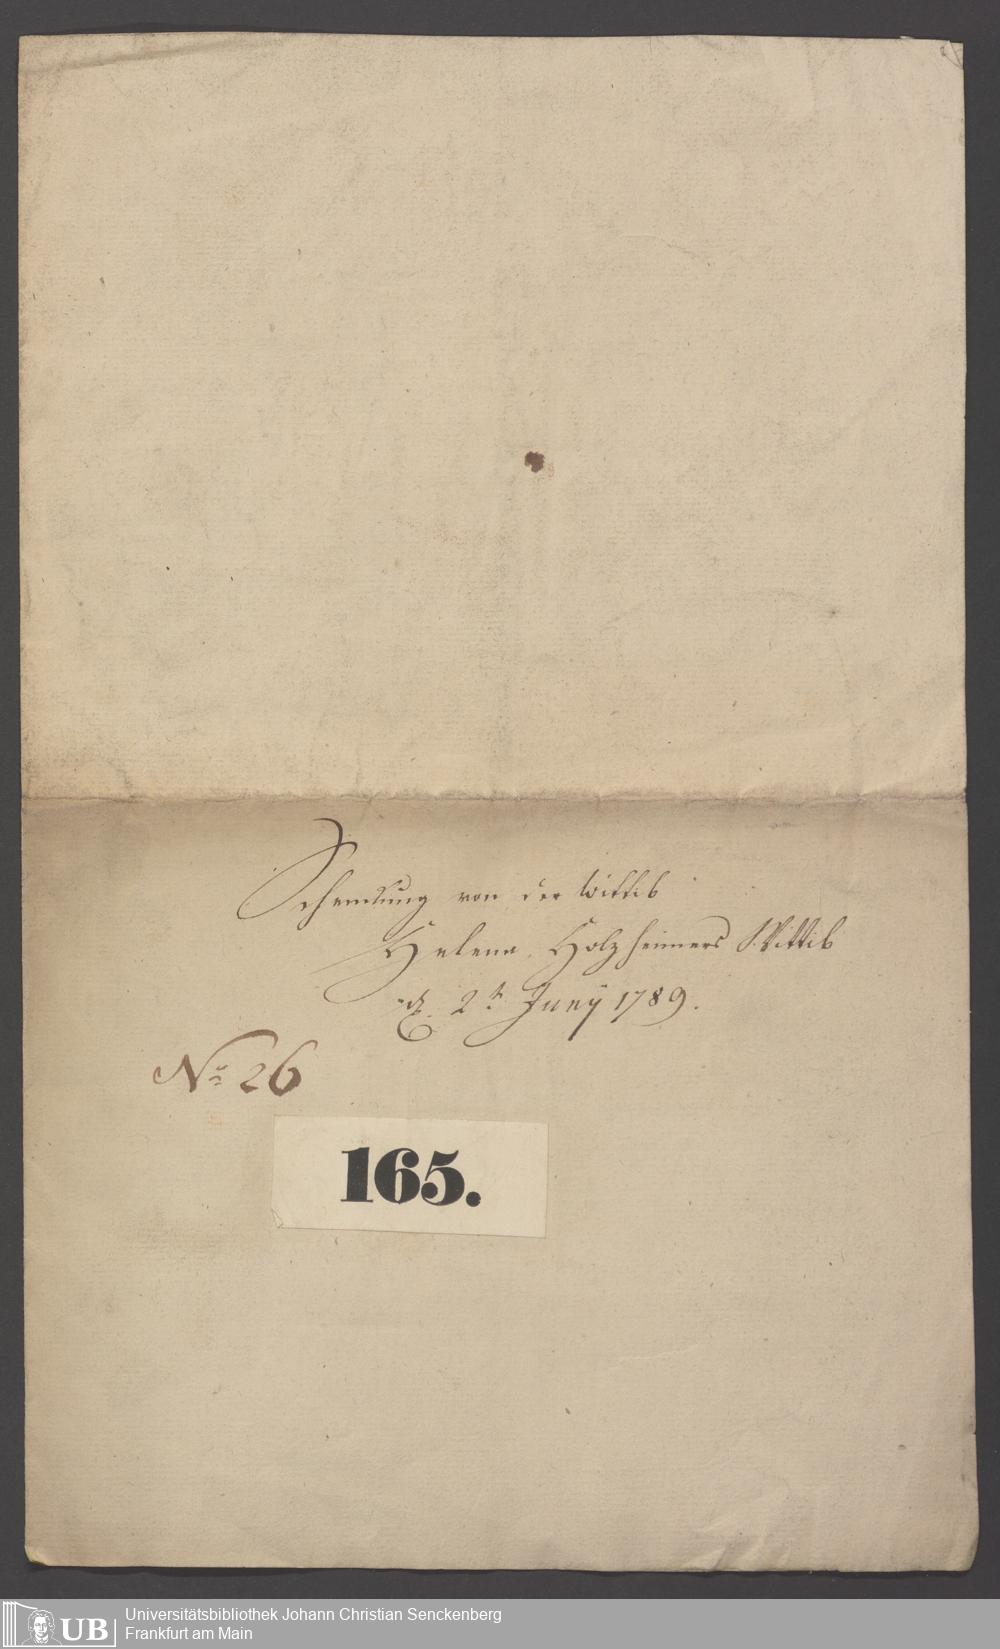 Schenkung von der Wittib
Helena Holzheimers Wittib
d. 2t Juny 1789.
No 26
165.
UB
Universitätsbibliothek Johann Christian Senckenberg
Frankfurt am Main